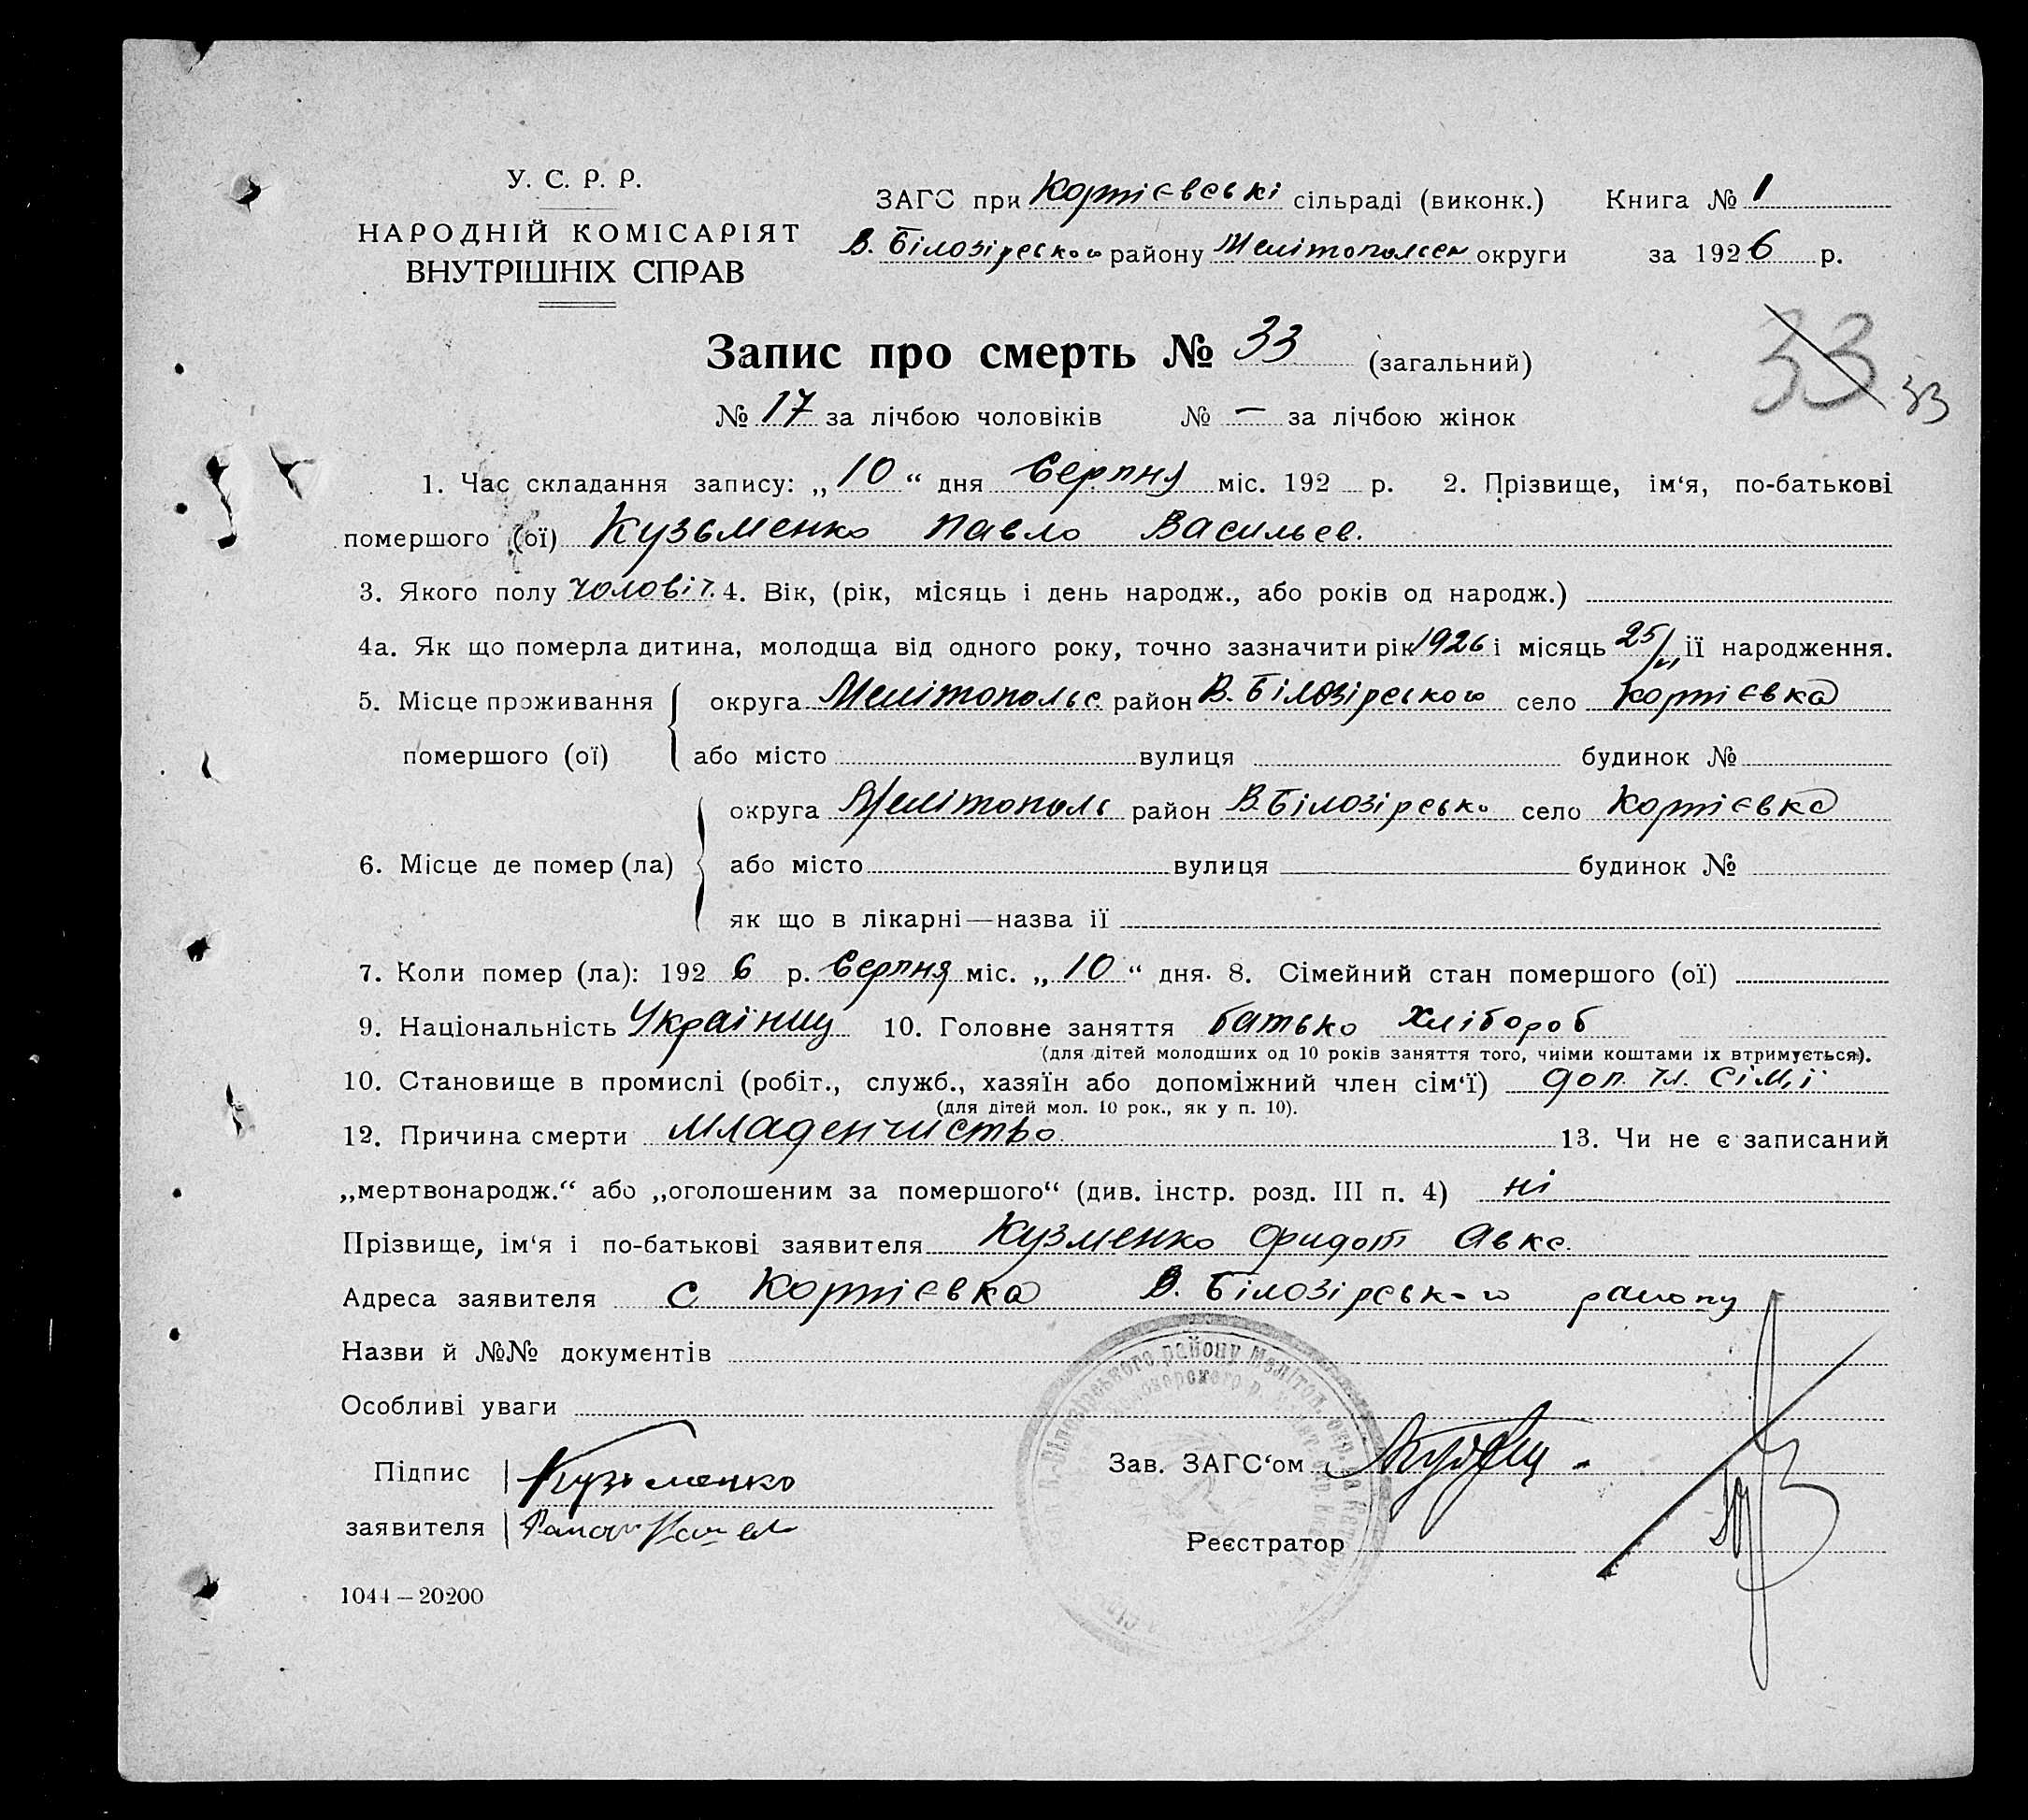 У. С. Р. Р.
НАРОДНІЙ КОМІСАРІЯТ
ВНУТРІШНІХ СПРАВ
ЗАГС при Кортієвські сільраді (виконк.) Книга № 1
В. Білозірського району Мелітопольск округи за 1926 р.
Запис про смерть № 33 (загальний)
33 33
№ 17 за лічбою чоловіків № — за лічбою жінок
1. Час складання запису: „10“ дня Серпня міс. 192 р. 2. Прізвище, ім‘я, по-батькові
помершого (ої) Кузьменко Павло Васильев.
3. Якого полу чоловіч. 4. Вік, (рік, місяць і день народж., або років од народж.)
4а. Як що померла дитина, молодща від одного року, точно зазначити рік 1926 і місяць 25/VI ії народження.
5. Місце проживання округа Мелітопольс. район В. Білозірського село Кортієвка
помершого (ої) або місто вулиця будинок №
округа Мелітополь район В. Білозірсько село Кортієвка
6. Місце де помер (ла) або місто вулиця будинок №
як що в лікарні—назва ії
7. Коли помер (ла): 1926 р. Серпня міс. „10“ дня. 8. Сімейний стан помершого (ої)
9. Національність Українц 10. Головне заняття батько хлібороб
(для дітей молодших од 10 років заняття того, чиїми коштами їх втримується).
10. Становище в промислі (робіт., служб., хазяїн або допоміжний член сім‘ї) доп. чл. сімії
(для дітей мол. 10 рок., як у п. 10).
12. Причина смерти Младенчиство 13. Чи не є записаний
„мертвонародж.“ або „оголошеним за помершого“ (див. інстр. розд. III п. 4) ні
Прізвище, ім‘я і по-батькові заявителя Кузменко Фидот Авкс.
Адреса заявителя с Кортієвка В. Білозірського району
Назви й №№ документів
Особливі уваги
Підпис Кузьменко
заявителя
Зав. ЗАГС‘ом
Реєстратор
1044—20200